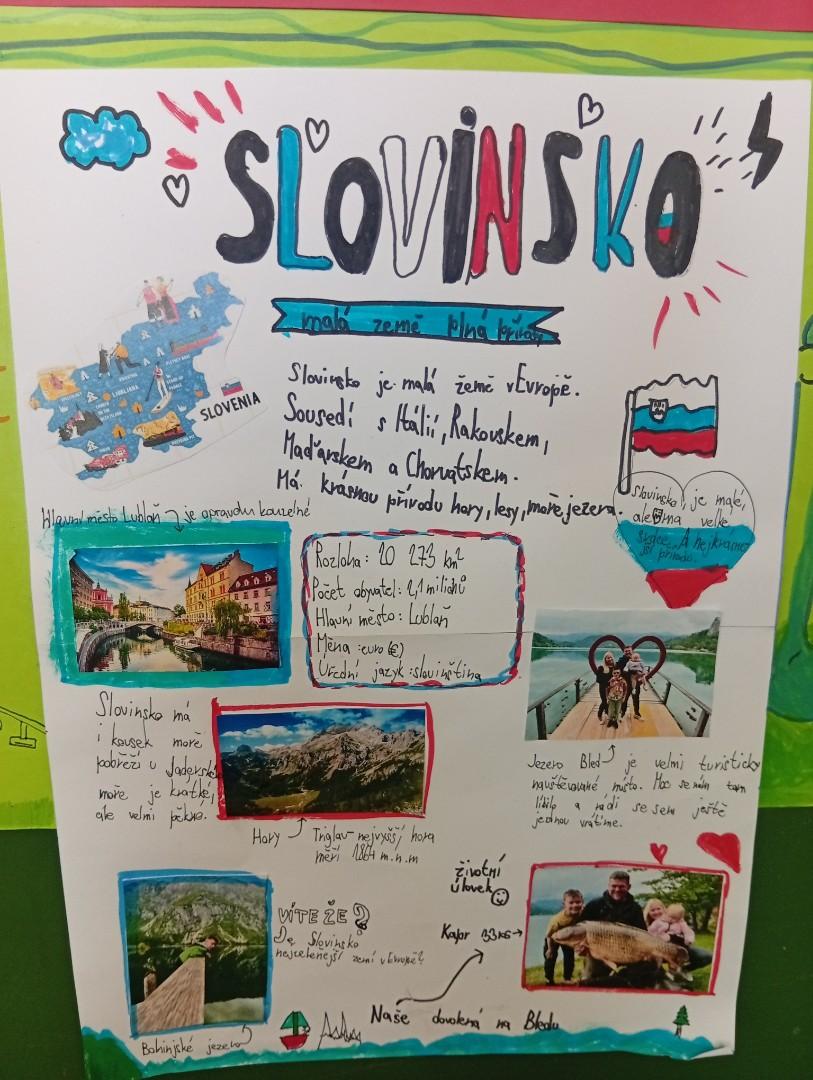 SLOVINSKO
malá země plná přírody
SLOVENIA
LJUBLJANA
Slovinsko je malá země v Evropě.
Sousedí s Itálií, Rakouskem,
Maďarskem a Chorvatskem.
Má krásnou přírodu hory, lesy, moře, jezera.
Slovinsko, je malé,
ale má velké
srdce. A nejkrásně
jší přírodu.
Hlavní město Lublaň je opravdu kouzelné
Rozloha: 20 273 km²
Počet obyvatel: 2,1 milionů
Hlavní město: Lublaň
Měna: euro (€)
Úřední jazyk: slovinština
Slovinsko má
i kousek moře
pobřeží u Jaderské
moře je krátké,
ale velmi pěkné.
Hory
Triglav-nejvyšší hora
měří 2864 m.n.m
Jezero Bled je velmi turisticky
navštěvované místo. Moc se nám tam
líbilo a rádi se sem ještě
jednou vrátíme.
životní
úlovek
Kapr 33kg
VÍTE ŽE?
Je Slovinsko
nejzelenější zemí v Evropě?
Naše dovolená na Bledu
Bohinjské jezero